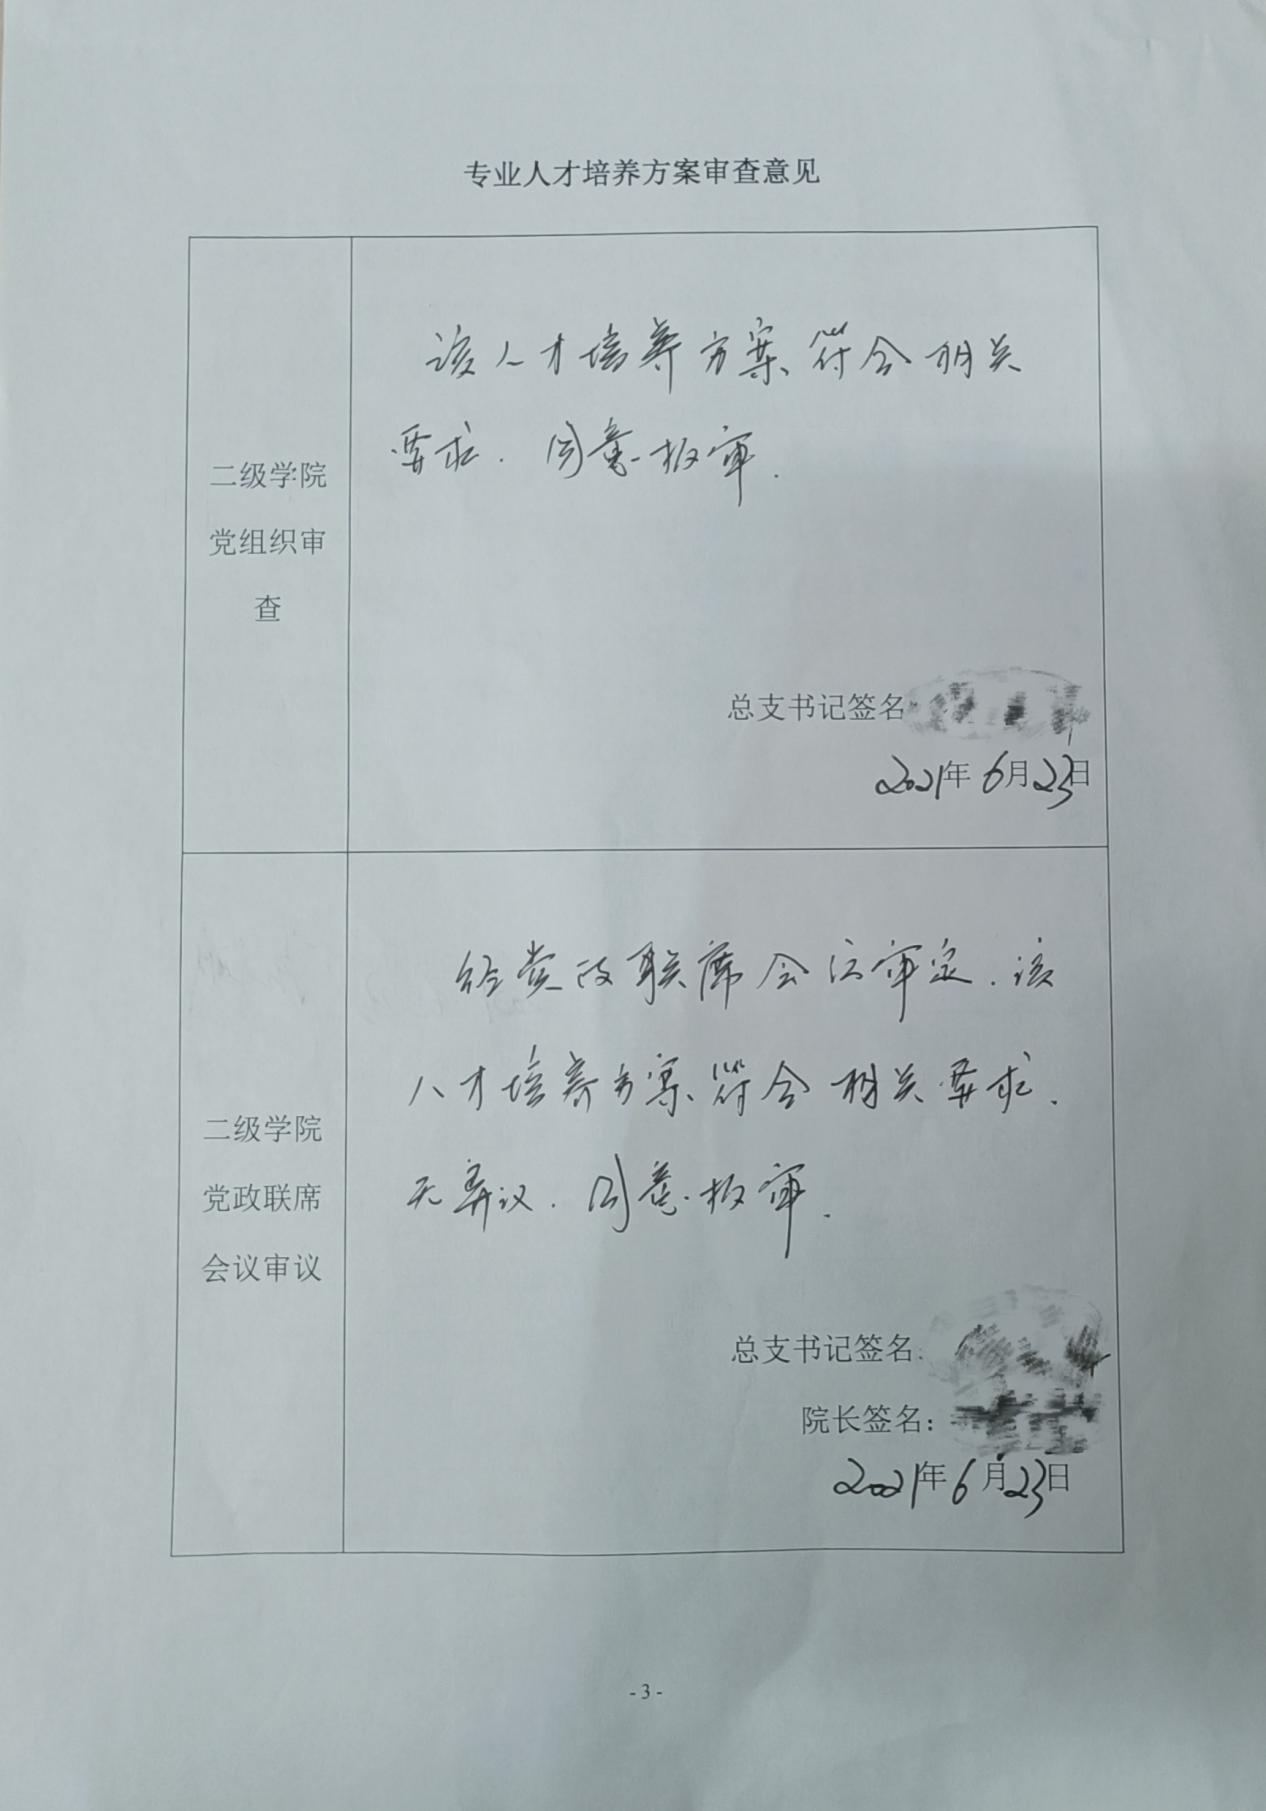 专业人才培养方案审查意见
二级学院
党组织审
查
该人才培养方案符合相关
要求.同意报审.
总支书记签名
2021年6月23日
二级学院
党政联席
会议审议
经党政联席会议审定.该
人才培养方案符合相关要求.
无异议.同意报审.
总支书记签名:
院长签名:
2021年6月23日
- 3 -